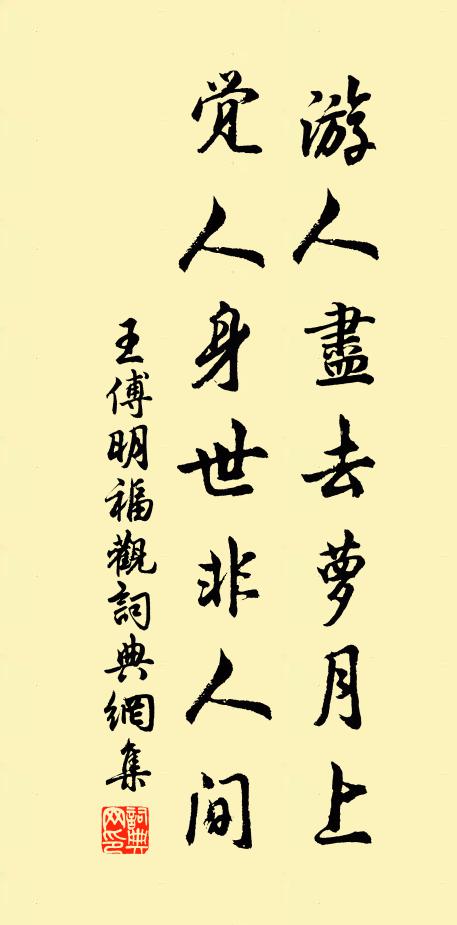 游人盡去萝月上
觉人身世非人间
王傅明福觀詞典網集
詞典
网印